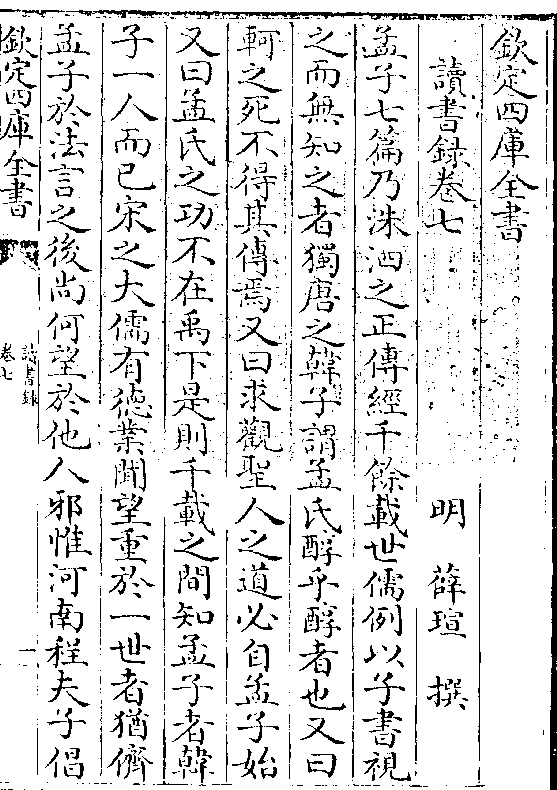 欽定四庫全書
讀書録卷七
明 薛瑄 撰
孟子七篇乃洙泗之正傳經千餘載世儒例以子書視
之而無知之者獨唐之韓子謂孟氏醇乎醇者也又曰
軻之死不得其傳焉又曰求觀聖人之道必自孟子始
又曰孟氏之功不在禹下是則千載之間知孟子者韓
子一人而已宋之大儒有徳業聞望重於一世者猶儕
孟子於法言之後尚何望於他人邪惟河南程夫子倡
欽定四庫全書
讀書録
卷七
一